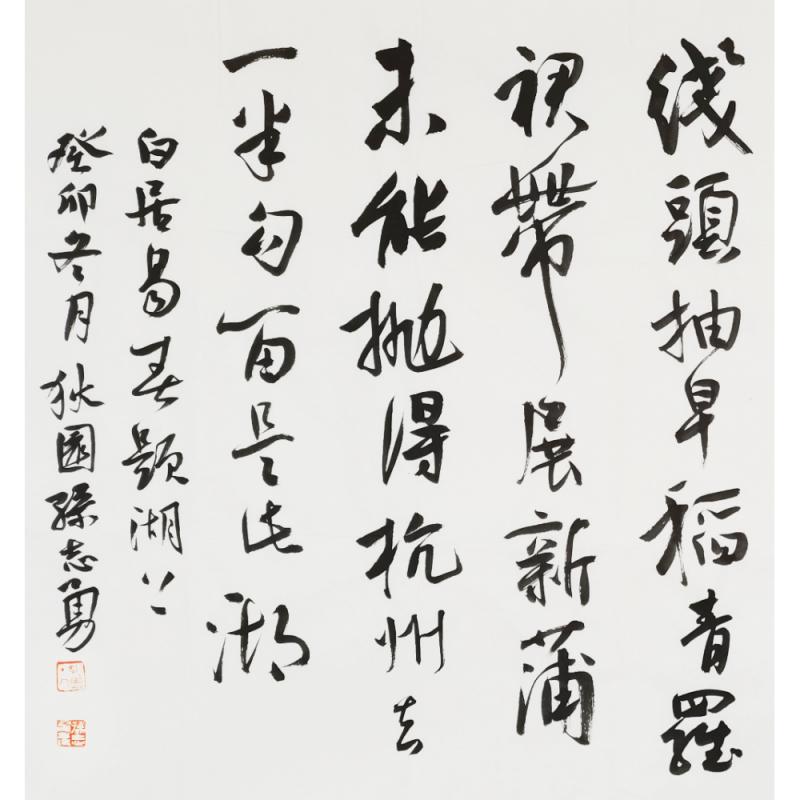 綫頭抽早稻青羅
裙帶展新蒲
未能抛得杭州去
一半勾留是此湖
白居易春題湖上
癸卯冬月狄園孫志勇